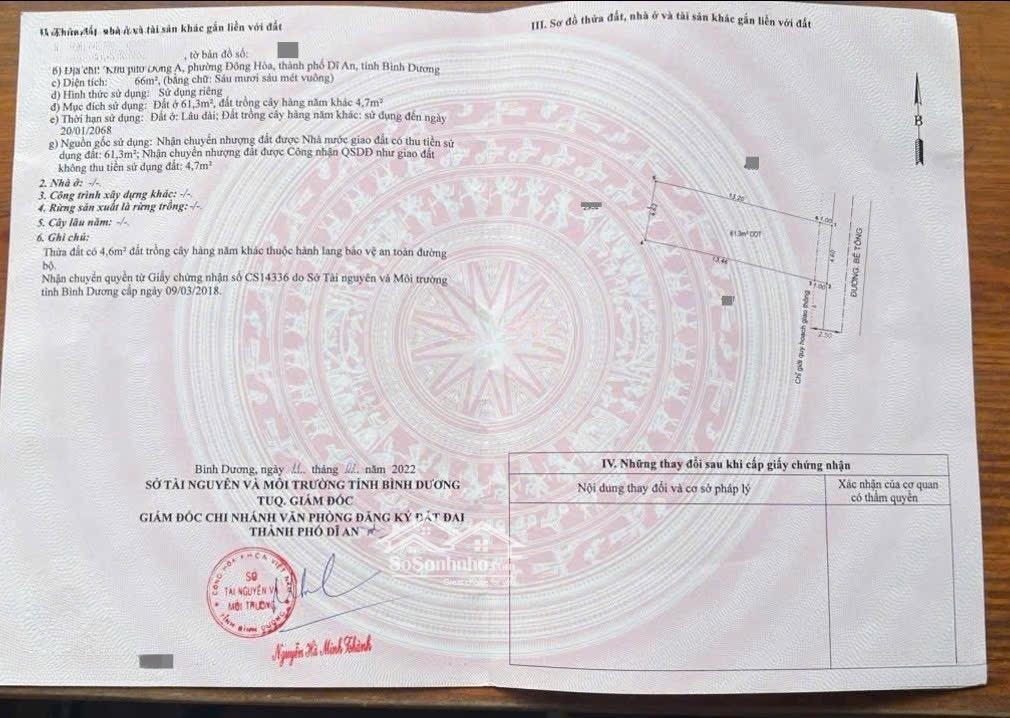 nhà ở và tài sản khác gắn liền với đất
, tờ bản đồ số:
b) Địa chỉ: Khu phố Đông A, phường Đông Hòa, thành phố Dĩ An, tỉnh Bình Dương
c) Diện tích: 66m², (bằng chữ: Sáu mươi sáu mét vuông)
d) Hình thức sử dụng: Sử dụng riêng
đ) Mục đích sử dụng: Đất ở 61,3m², đất trồng cây hàng năm khác 4,7m²
e) Thời hạn sử dụng: Đất ở: Lâu dài; Đất trồng cây hàng năm khác: sử dụng đến ngày
20/01/2068
g) Nguồn gốc sử dụng: Nhận chuyển nhượng đất được Nhà nước giao đất có thu tiền sử
dụng đất: 61,3m²; Nhận chuyển nhượng đất được Công nhận QSDĐ như giao đất
không thu tiền sử dụng đất: 4,7m²
2. Nhà ở: -/-.
3. Công trình xây dựng khác: -/-.
4. Rừng sản xuất là rừng trồng: -/-.
5. Cây lâu năm: -/-.
6. Ghi chú:
Thửa đất có 4,6m² đất trồng cây hàng năm khác thuộc hành lang bảo vệ an toàn đường
bộ.
Nhận chuyển quyền từ Giấy chứng nhận số CS14336 do Sở Tài nguyên và Môi trường
tỉnh Bình Dương cấp ngày 09/03/2018.
Bình Dương, ngày tháng năm 2022
SỞ TÀI NGUYÊN VÀ MÔI TRƯỜNG TỈNH BÌNH DƯƠNG
TUQ. GIÁM ĐỐC
GIÁM ĐỐC CHI NHÁNH VĂN PHÒNG ĐĂNG KÝ ĐẤT ĐAI
THÀNH PHỐ DĨ AN
CỘNG HÒA XHCN VIỆT NAM
SỞ
TÀI NGUYÊN VÀ
MÔI TRƯỜNG
TỈNH BÌNH DƯƠNG
Nguyễn Hà Minh Khánh
SoSonhnho.com
III. Sơ đồ thửa đất, nhà ở và tài sản khác gắn liền với đất
B
13,20
1.00
61.3m² ODT
4.60
13,46
1.00
2.50
ĐƯỜNG BÊ TÔNG
Chỉ giới quy hoạch giao thông
IV. Những thay đổi sau khi cấp giấy chứng nhận
Nội dung thay đổi và cơ sở pháp lý
Xác nhận của cơ quan
có thẩm quyền